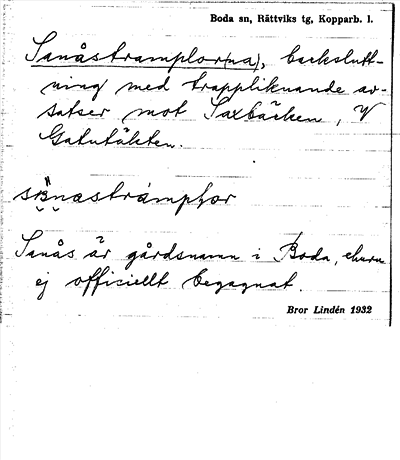 Boda sn, Rättviks tg, Kopparb. l.
Sanåstramplor(na), backslutt-
ning med trappliknande av-
satser mot Saxbäcken, V
Gatutäkten.
Sanås är gårdsnamn i Boda, ehuru
ej officiellt begagnat.
Bror Lindén 1932